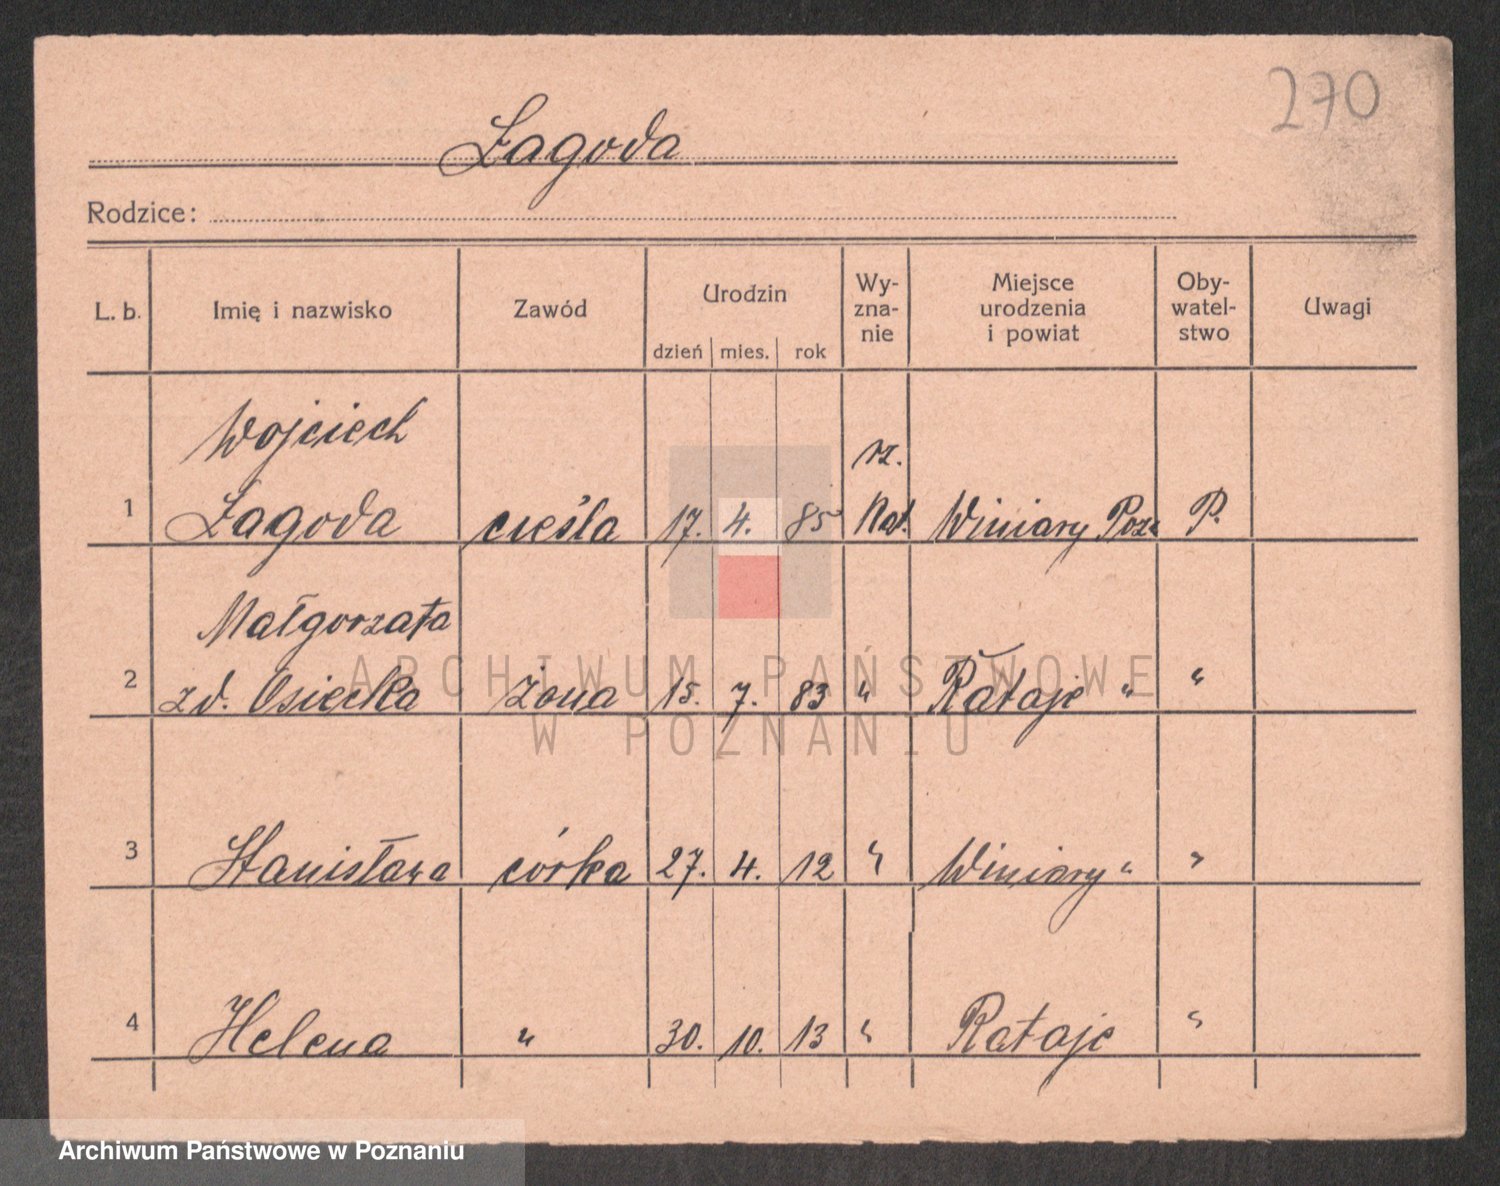 270
Łagoda
Rodzice:
L. b. Imię i nazwisko Zawód Urodzin dzień mies. rok Wy-zna-nie Miejsce urodzenia i powiat Oby-watel-stwo Uwagi
Wojciech rz.
1 Łagoda cieśla 17. 4. 85 kat. Winiary Pozn P.
Małgorzata
2 zd. Osiecka żona 15. 7. 83 " Rataje " "
3 Stanisława córka 27. 4. 12 " Winiary " "
4 Helena " 30. 10. 13 " Rataje "
ARCHIWUM PAŃSTWOWE
W POZNANIU
Archiwum Państwowe w Poznaniu